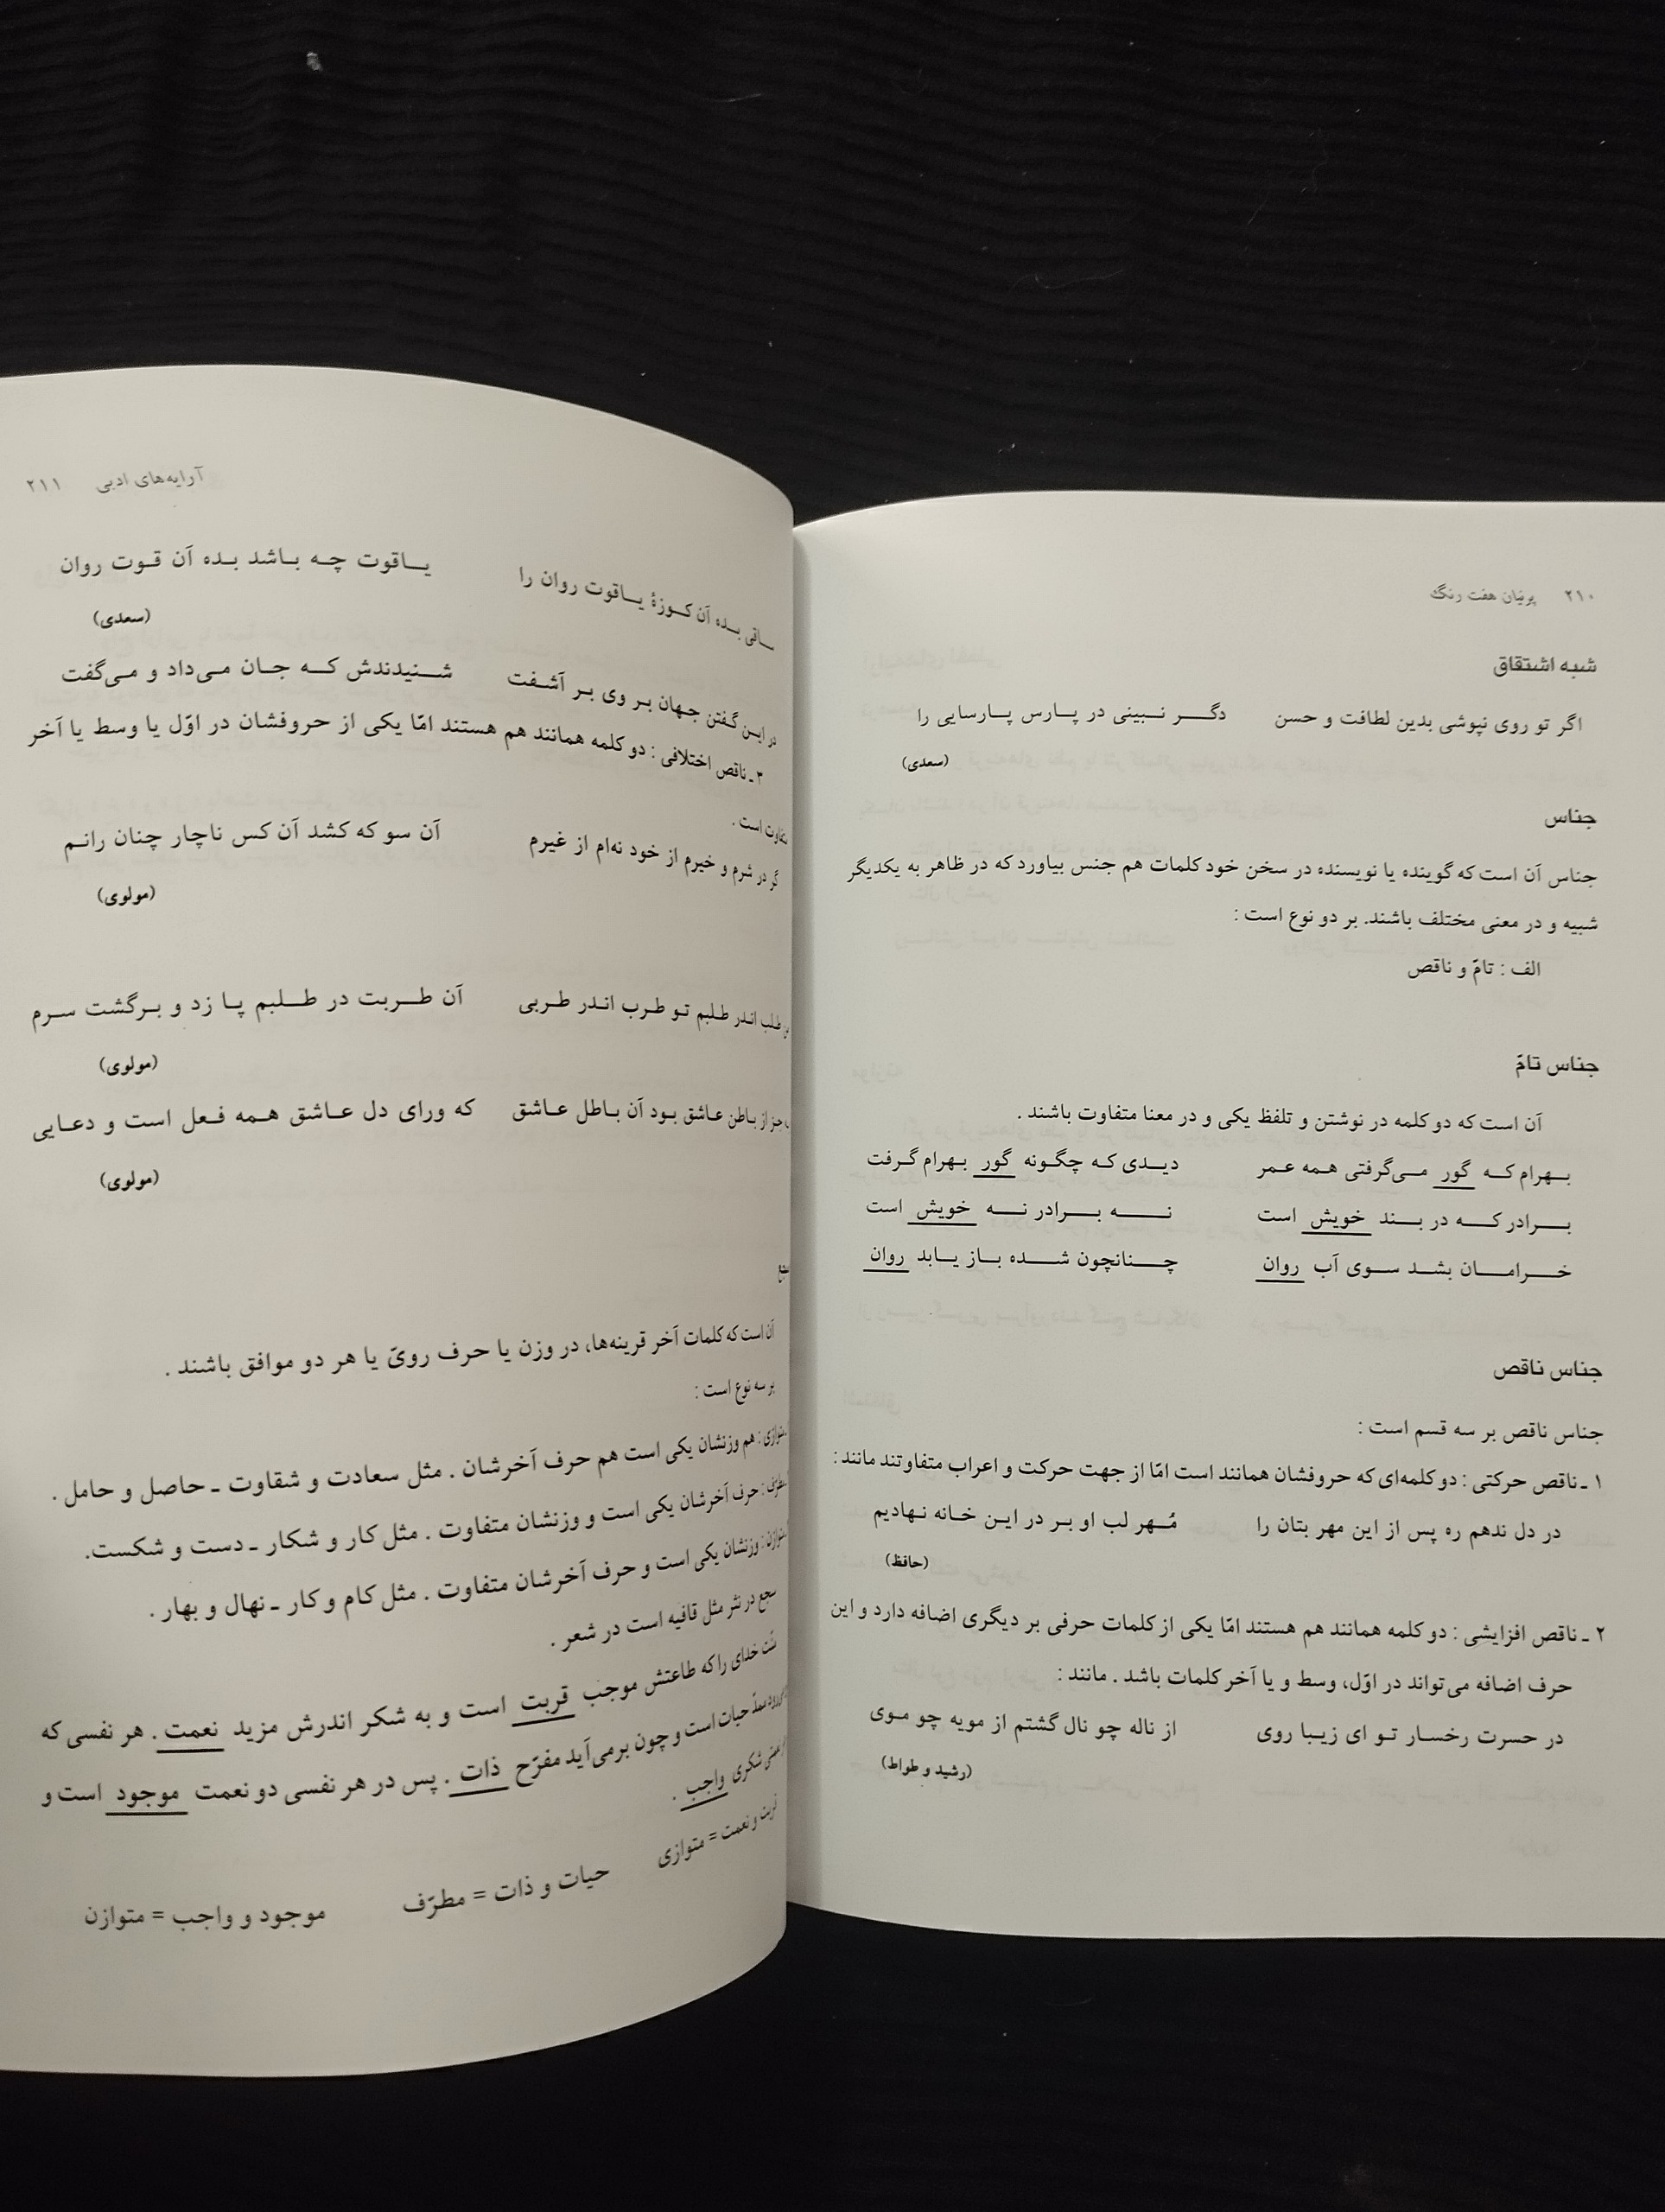 ۲۱۰ پرنیان هفت رنگ
شبه اشتقاق
اگر تو روی نپوشی بدین لطافت و حسن دگر نبینی در پارس پارسایی را
(سعدی)
جناس
جناس آن است که گوینده یا نویسنده در سخن خود کلمات هم جنس بیاورد که در ظاهر به یکدیگر
شبیه و در معنی مختلف باشند. بر دو نوع است :
الف : تامّ و ناقص
جناس تامّ
آن است که دو کلمه در نوشتن و تلفظ یکی و در معنا متفاوت باشند .
بهرام که گور می‌گرفتی همه عمر دیدی که چگونه گور بهرام گرفت
برادر که در بند خویش است نه برادر نه خویش است
خرامان بشد سوی آب روان چنانچون شده باز یابد روان
جناس ناقص
جناس ناقص بر سه قسم است :
۱ ـ ناقص حرکتی : دو کلمه‌ای که حروفشان همانند است امّا از جهت حرکت و اعراب متفاوتند مانند :
در دل ندهم ره پس از این مهر بتان را مُهر لب او بر در این خانه نهادیم
(حافظ)
۲ ـ ناقص افزایشی : دو کلمه همانند هم هستند امّا یکی از کلمات حرفی بر دیگری اضافه دارد و این
حرف اضافه می‌تواند در اوّل، وسط و یا آخر کلمات باشد . مانند :
در حسرت رخسار تو ای زیبا روی از ناله چو نال گشتم از مویه چو موی
(رشید و طواط)
آرایه‌های ادبی ۲۱۱
ساقی بده آن کوزهٔ یاقوت روان را یاقوت چه باشد بده آن قوت روان
(سعدی)
در این گفتن جهان بر وی بر آشفت شنیدندش که جان می‌داد و می‌گفت
۳ ـ ناقص اختلافی : دو کلمه همانند هم هستند امّا یکی از حروفشان در اوّل یا وسط یا آخر
متفاوت است .
گر در شرم و خیرم از خود نه‌ام از غیرم آن سو که کشد آن کس ناچار چنان رانم
(مولوی)
طلب اندر طلبم تو طرب اندر طربی آن طربت در طلبم پا زد و برگشت سرم
(مولوی)
جز از باطن عاشق بود آن باطل عاشق که ورای دل عاشق همه فعل است و دعایی
(مولوی)
سجع
آن است که کلمات آخر قرینه‌ها، در وزن یا حرف رویّ یا هر دو موافق باشند .
بر سه نوع است :
متوازی : هم وزنشان یکی است هم حرف آخرشان . مثل سعادت و شقاوت ـ حاصل و حامل .
مطرف : حرف آخرشان یکی است و وزنشان متفاوت . مثل کار و شکار ـ دست و شکست.
متوازن : وزنشان یکی است و حرف آخرشان متفاوت . مثل کام و کار ـ نهال و بهار .
سجع در نثر مثل قافیه است در شعر .
منّت خدای را که طاعتش موجب قربت است و به شکر اندرش مزید نعمت . هر نفسی که
فرو می‌رود ممدّ حیات است و چون برمی‌آید مفرّح ذات . پس در هر نفسی دو نعمت موجود است و
نعمتی شکری واجب .
قربت و نعمت = متوازی حیات و ذات = مطرّف موجود و واجب = متوازن